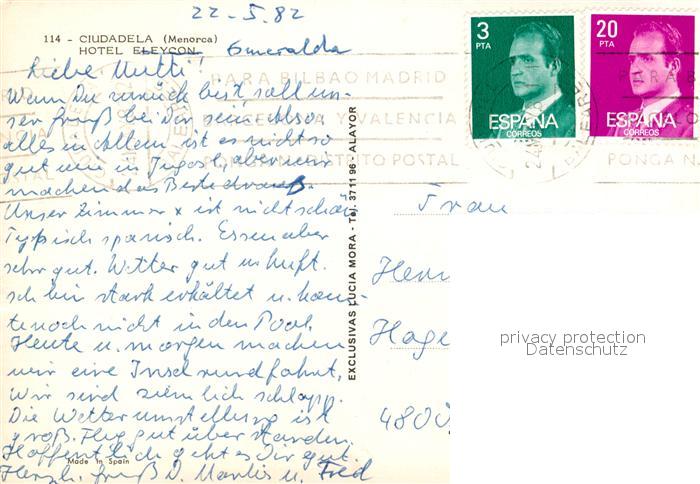 22-5.82
114 - CIUDADELA (Menorca)
HOTEL ELEYCON Esmeralda
Liebe Mutti!
Wenn Du zurück bist soll un-
ser Gruß bei Dir sein. Also
alles in Allem ist es nicht so
gut wie in Jugosl., aber wir
machen das Beste draus.
Unser Zimmer ist nicht schön
Typisch spanisch. Essen aber
sehr gut. Wetter gut u. Luft.
Ich bin stark erkältet u. konn-
te noch nicht in den Pool.
Heute u. morgen machen
wir eine Inselrundfahrt.
Wir sind ziemlich schlapp.
Die Wetterumstellung ist
groß. Flug gut überstanden.
Hoffentlich geht es Dir gut.
Herzl. Grüß D. Marlis u. Fred
Made in Spain
EXCLUSIVAS LUCIA MORA - Tel. 37 11 96 - ALAYOR
3
PTA
ESPAÑA
CORREOS
20
PTA
ESPAÑA
CORREOS
PARA BILBAO MADRID
Y VALENCIA
DISTRITO POSTAL
PARA B
PONGA N
Frau
Hage
privacy protection
Datenschutz